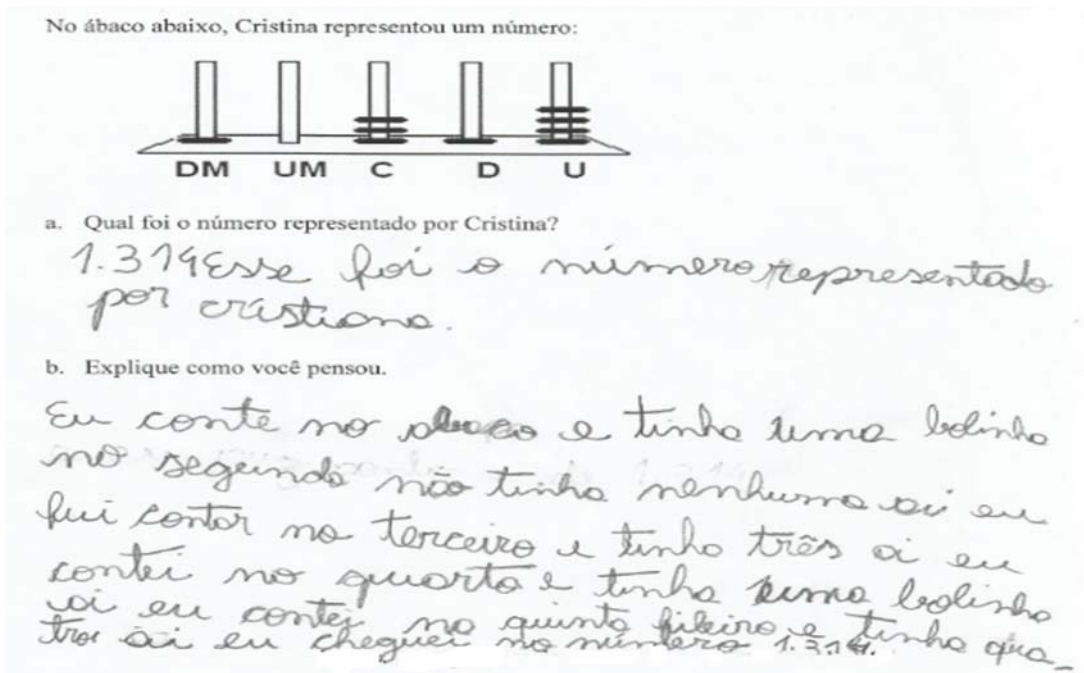 No ábaco abaixo, Cristina representou um número:
DM UM C D U
a. Qual foi o número representado por Cristina?
1.314 Esse foi o número representado
por cristiana.
b. Explique como você pensou.
Eu conte no abaco e tinha uma bolinha
no segundo não tinha nenhuma ai eu
fui contar no terceiro e tinha três ai eu
contei no quarto e tinha uma bolinha
ai eu contei no quinta fileira e tinha qua_
tro ai eu cheguei no número 1.314.